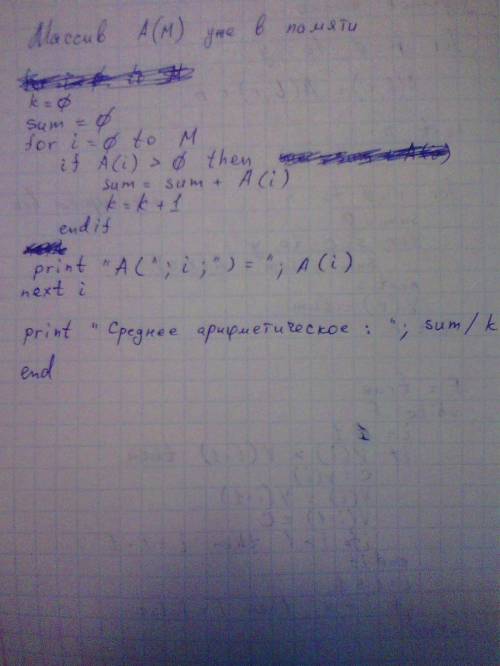 Массив A(M) уже в памяти
k=∅
sum = ∅
for i = ∅ to M
if A(i) > ∅ then
sum = sum + A(i)
k = k + 1
endif
print "A("; i ;") = "; A(i)
next i
print "Среднее арифметическое : "; sum/k
end